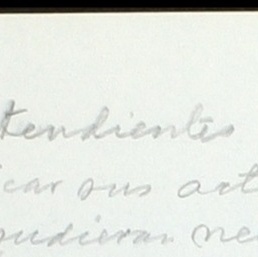 tendientes
car sus art
pudieran ne